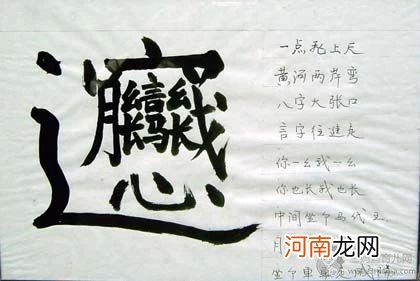 𰻞
一点飞上天
黄河两岸弯
八字大张口
言字往进走
你一幺我一幺
你也长我也长
中间坐个马代王
月
坐个车车
河南龙网